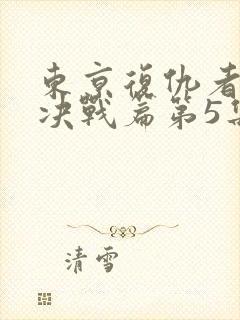 東京復仇者
决戰篇第5集
清雪